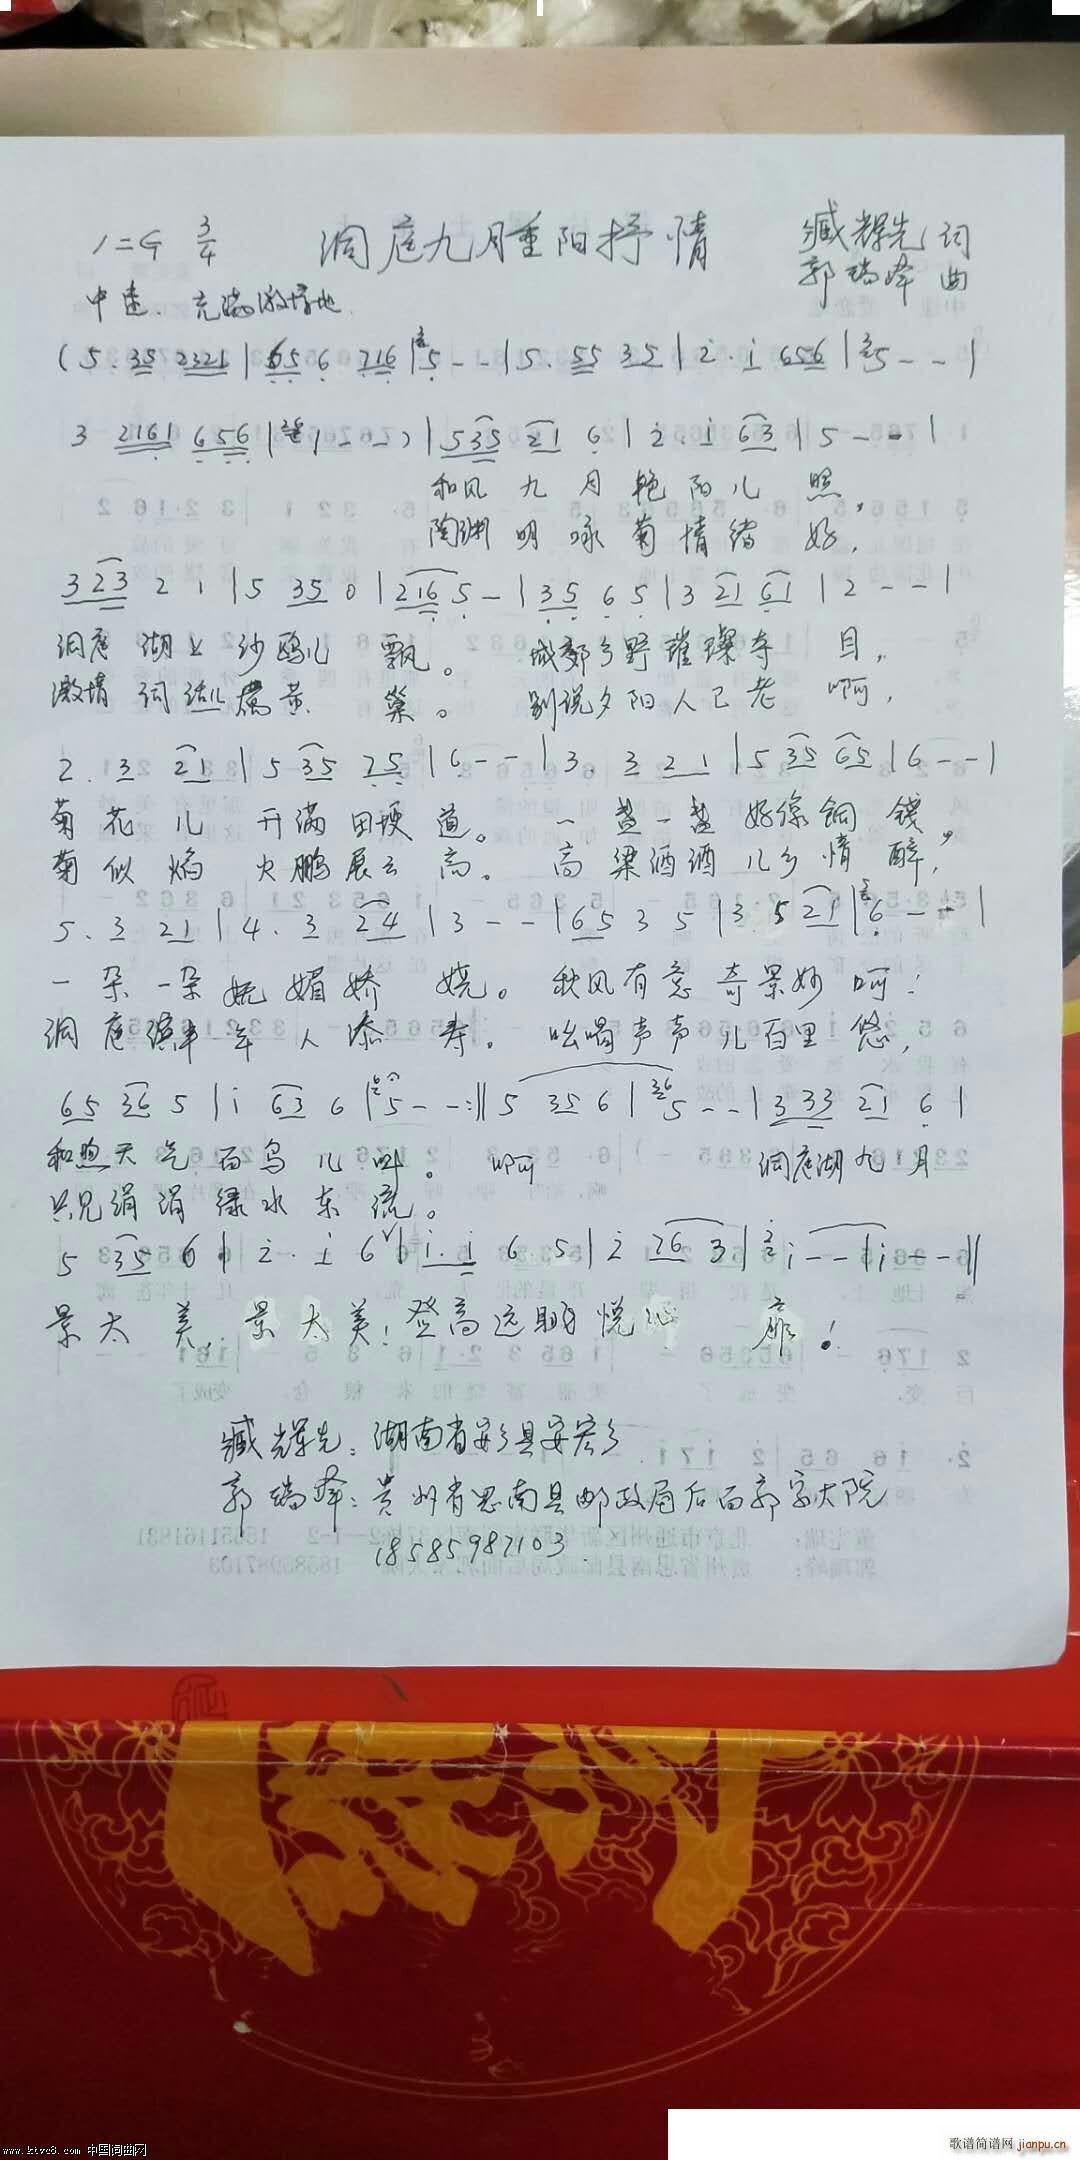 1=G 3/4 洞庭九月重阳抒情 臧辉先 词
郭瑞峰 曲
中速、充满激情地
(5. 35 2321 | 65 6 716 | 5 - - | 5. 55 35 | 2. 1 656 | 5 - - |
3 2161 656 | 1 - - ) | 535 21 6 | 2. 1 63 | 5 - - |
和风九月艳阳儿照，
陶渊明咏菊情绪好，
323 2 1 | 5 35 0 | 216 5 - | 35 6 5 | 3 21 61 | 2 - - |
洞庭湖上沙鸥儿飘。城郊乡野璀璨夺目，
激情词话儿黄巢。别说夕阳人已老啊，
2. 3 21 | 5 35 75 | 6 - - | 3. 3 21 | 5 35 65 | 6 - - |
菊花儿开满田埂道。一盏一盏好像铜钱，
菊似焰火鹏展云高。高粱酒酒儿乡情醉，
5. 3 21 | 4. 3 24 | 3 - - | 65 3 5 | 3. 5 21 | 6 - - |
一朵一朵妩媚娇娆。秋风有意奇景妙啊！
洞庭年人添寿。吆喝声声儿百里悠，
65 36 5 | 1 63 6 | 5 - - :|| 5 35 6 | 5 - - | 333 21 6 |
和煦天气百鸟儿叫。啊 洞庭湖九月
只见涓涓绿水东流。
5 35 6 | 2. 1 6 | 1. 1 6. 5 | 2 76 3 | 1 - - | 1 - - ||
景太美，景太美！登高远眺悦心
臧辉先：湖南省安乡县安宏乡
郭瑞峰：贵州省思南县邮政局后面郭家大院
18585987103
www.ktvc8.com 中国词曲网
歌谱简谱网 jianpu.cn